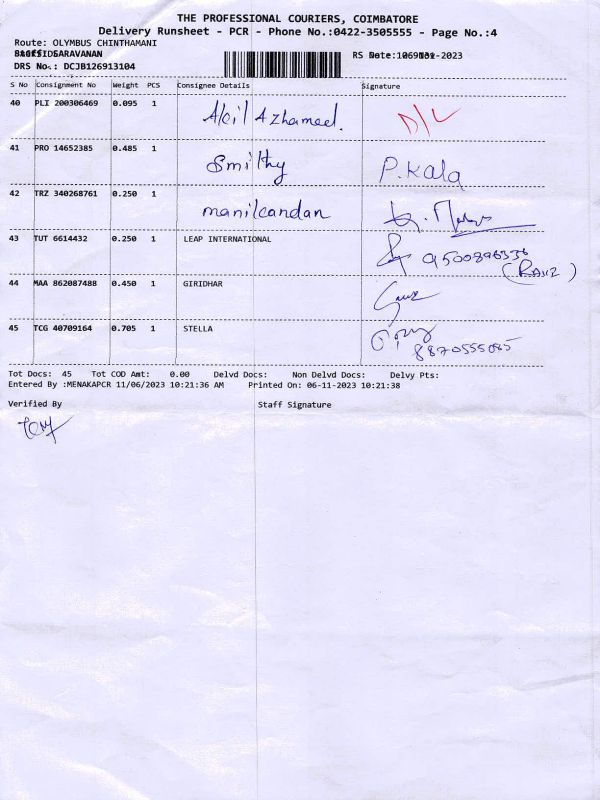 THE PROFESSIONAL COURIERS, COIMBATORE
Delivery Runsheet - PCR - Phone No.:0422-3505555 - Page No.:4
Route: OLYMBUS CHINTHAMANI
SARAVANAN
RS Date:
-2023
DRS No.: DCJB126913104
S No Consignment No Weight PCS Consignee Details Signature
40 PLI 200306469 0.095 1 Akil Azhameed. D/L
41 PRO 14652385 0.485 1 Smithy P.Kala
42 TRZ 340268761 0.250 1 manikandan
43 TUT 6614432 0.250 1 LEAP INTERNATIONAL
44 MAA 862087488 0.450 1 GIRIDHAR
45 TCG 40709164 0.705 1 STELLA
Tot Docs: 45 Tot COD Amt: 0.00 Delvd Docs: Non Delvd Docs: Delvy Pts:
Entered By :MENAKAPCR 11/06/2023 10:21:36 AM Printed On: 06-11-2023 10:21:38
Verified By Staff Signature